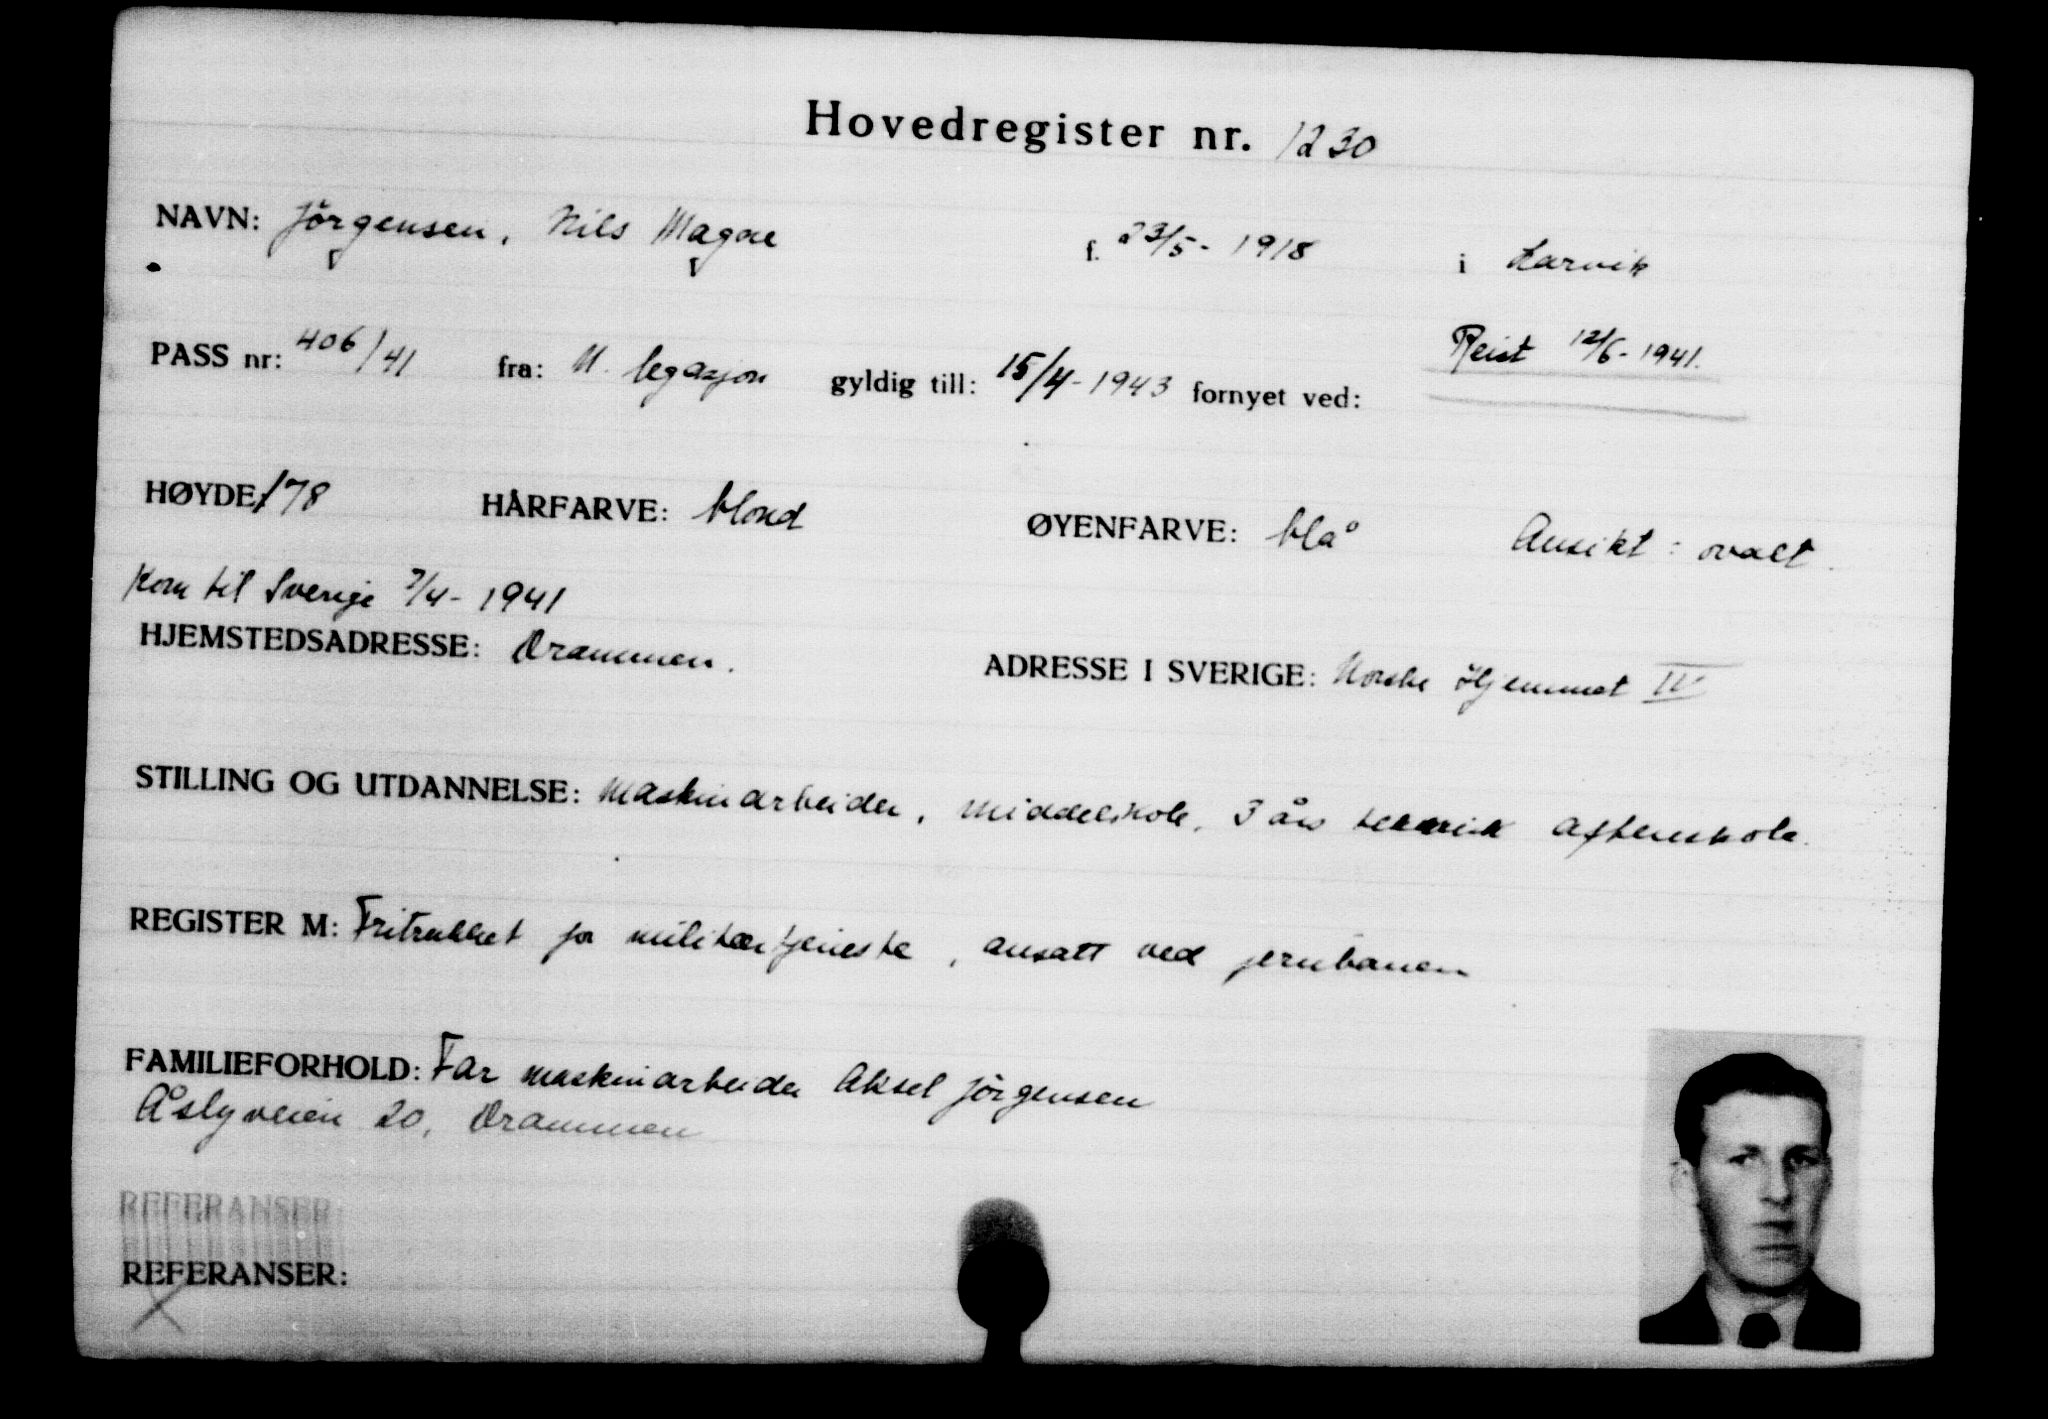 Hovedregister nr. 1230
NAVN: Jörgensen, Nils Magne f. 23/5- 1918 i Larvik
Reist 12/6- 1941.
PASS nr: 406/41 fra: N. legasjon gyldig till: 15/4- 1943 fornyet ved:
HØYDE: 178 HÅRFARVE: blond ØYENFARVE: blå Ansikt: ovalt.
Kom til Sverige 7/4- 1941
HJEMSTEDSADRESSE: Drammen. ADRESSE I SVERIGE: Norske Hjemmet
STILLING OG UTDANNELSE: Maskinarbeider, middelskole, 3 års teknisk aftenskole.
REGISTER M: Fritrukket for militærtjeneste, ansatt ved jernbanen
FAMILIEFORHOLD: Far maskinarbeider Aksel Jörgensen
Åslyveien 20, Drammen
REFERANSER:
REFERANSER: